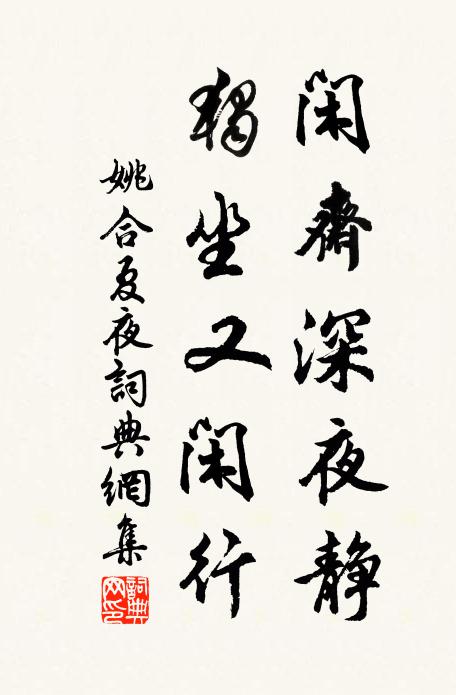 閑齋深夜静
獨坐又閑行
姚合夏夜詞典網集
詞典网印